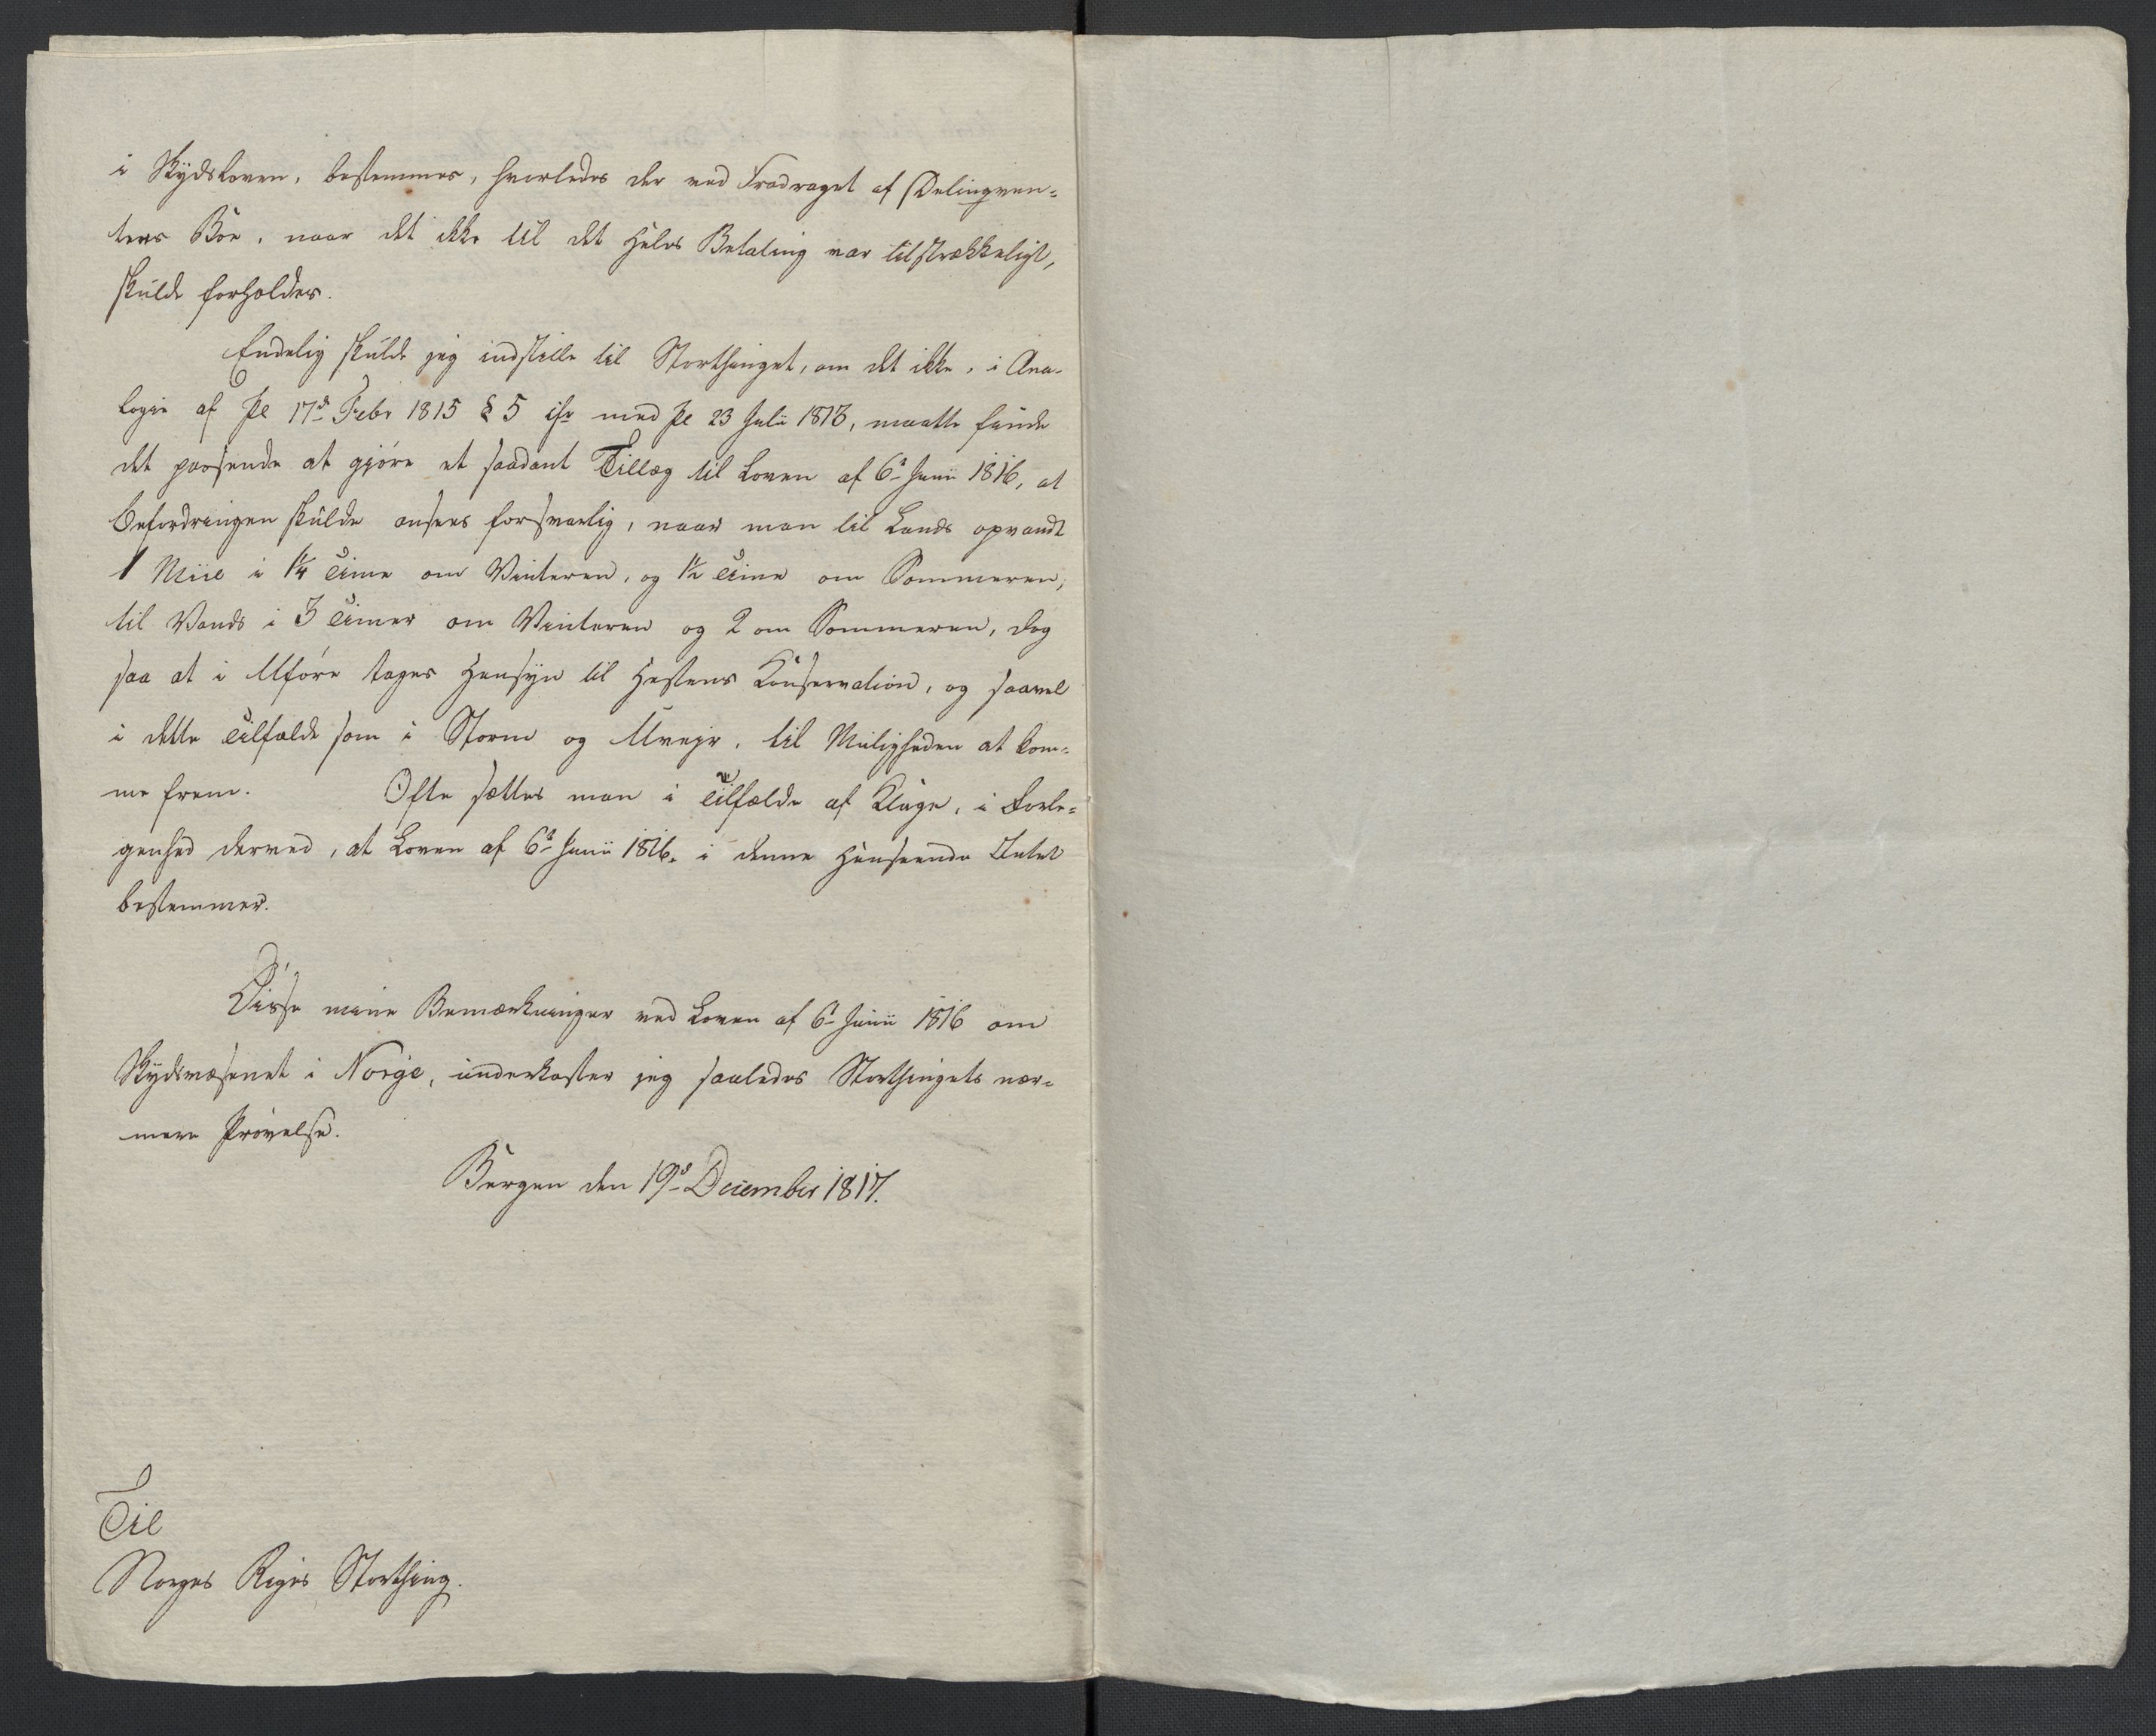 i Skydsloven, bestemmes, hvorledes der ved Fradraget af Delinqven-
tens Boe, naar det ikke til det Heles Betaling var tilstrækkeligt,
skulde forholdes.
Endelig skulde jeg indstille til Storthinget, om det ikke, i Ana-
logie af Pl 17de Febr 1815 § 5 cfr med Pl 23 Julii 1813, maatte finde
det passende at gjøre et saadant Tillæg til Loven af 6te Junii 1816, at
Befordringen skulde ansees forsvarlig, naar man til Lands opvandt
1 Miil i 1¼ Time om Vinteren, og 1½ Time om Sommeren,
til Vands i 3 Timer om Vinteren og 2 om Sommeren, dog
saa at i Uføre tages Hensyn til Hestens Conservation, og saavel
i dette Tilfælde som i Storm og Uvejr, til Muligheden at kom-
me frem. Ofte sættes man i Tilfælde af Klage, i Forle-
genhed derved, at Loven af 6te Junii 1816. i denne Henseende Intet
bestemmer.
Disse mine Bemærkninger ved Loven af 6te Junii 1816 om
Skydsvæsenet i Norge, underkaster jeg saaledes Storthingets nær-
mere Prøvelse.
Bergen den 19de December 1817.
Til
Norges Riges Storthing.